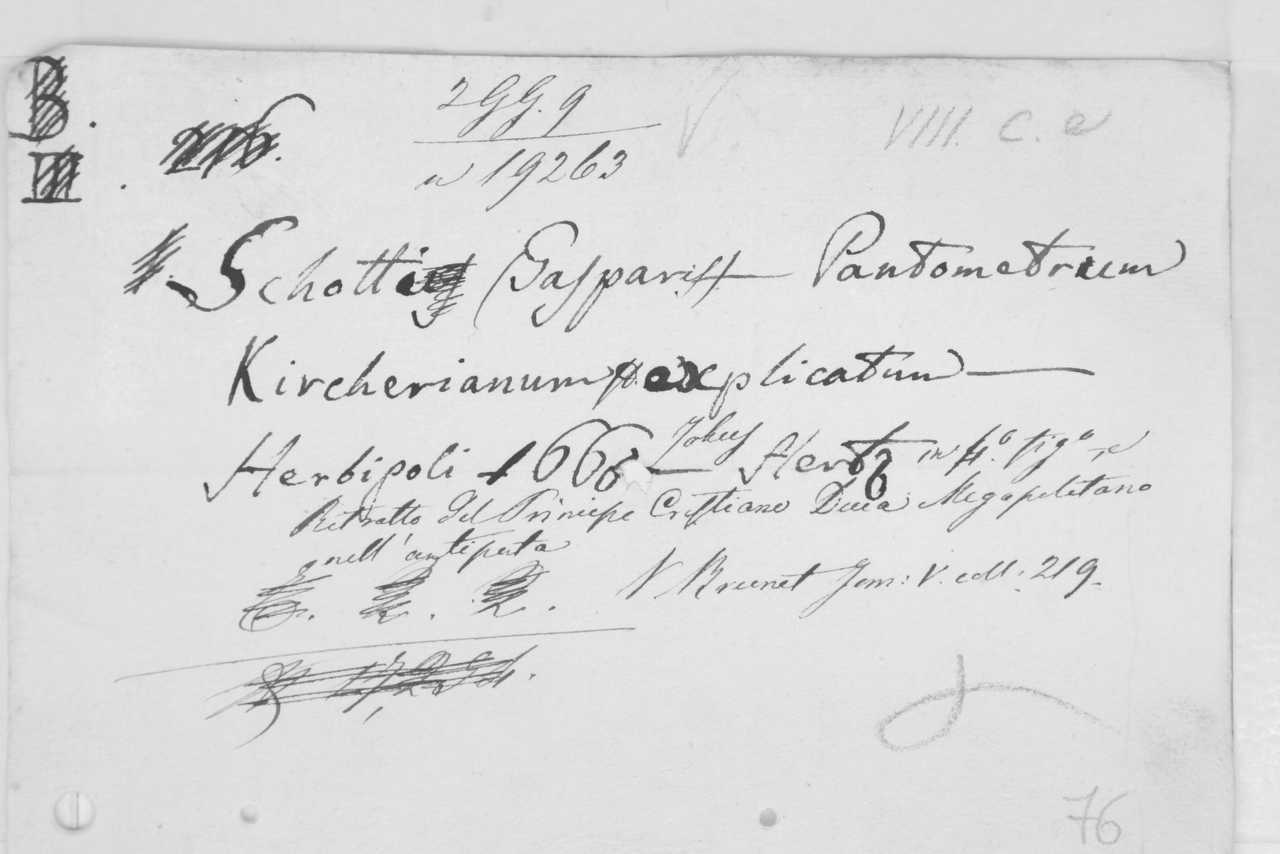 B.
III.
2GG. 9
n 19263
VIIII. C. e
Schotti Gasparis Pantometrum
Kircherianum explicatum
Herbipoli 1666 Hertz in 4.º figº
Ritratto del Principe Cristiano Duca Megapolitano
nell'antiporta
V Brunet Tom: V. coll: 219.
76